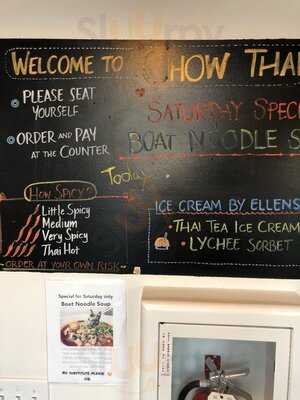 WELCOME TO CHOW THAI
PLEASE SEAT
YOURSELF
ORDER AND PAY
AT THE COUNTER
SATURDAY SPECI
BOAT NOODLE S
Today
HOW SPICY?
Little Spicy
Medium
Very Spicy
Thai Hot
ORDER AT YOUR OWN RISK
ICE CREAM BY ELLENS
THAI TEA ICE CREAM
LYCHEE SORBET
Special for Saturday only
Boat Noodle Soup
NO SUBSTITUTE PLEASE